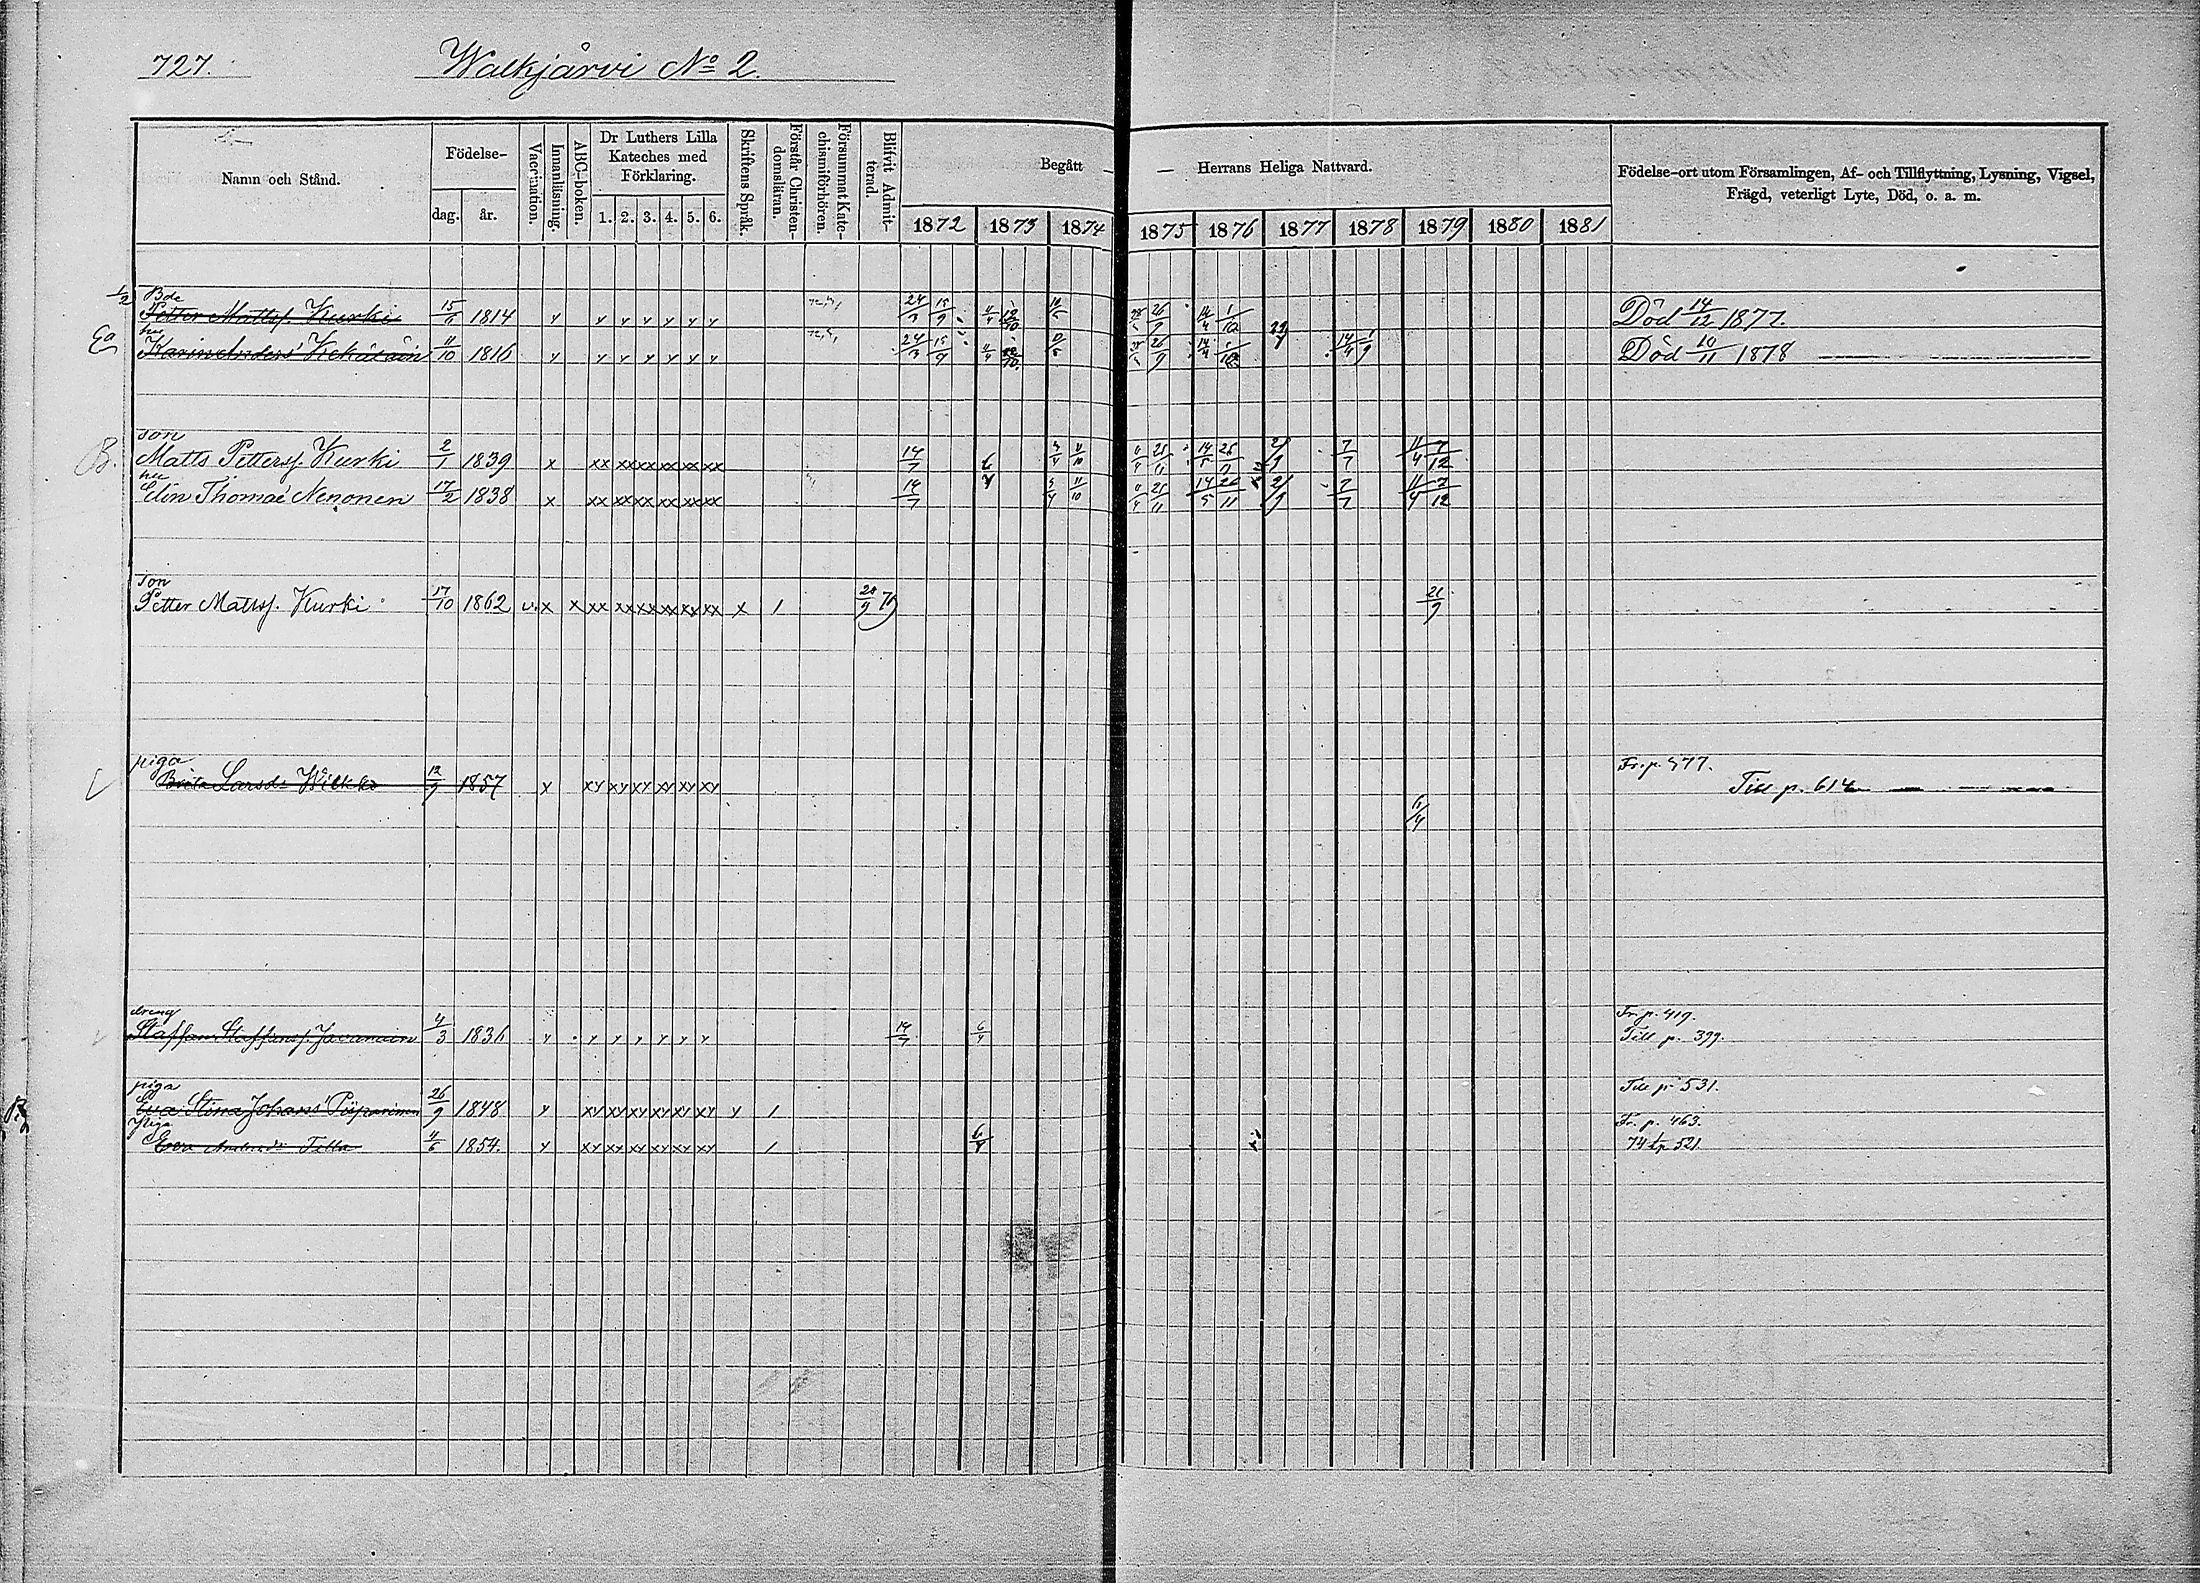 727.
Walkjärvi No 2.
Namn och Stånd.
Födelse-
dag. år.
Vaccination.
Innanläsning.
ABC-boken.
Dr Luthers Lilla
Kateches med
Förklaring.
1. 2. 3. 4. 5. 6.
Skriftens Språk.
Förstår Christen-
domsläran.
Försummat Kate-
chismiförhören.
Blifvit Admit-
terad.
Begått — — Herrans Heliga Nattvard.
1872 1873 1874 1875 1876 1877 1878 1879 1880 1881
Födelse-ort utom Församlingen, Af- och Tillflyttning, Lysning, Vigsel,
Frägd, veterligt Lyte, Död, o. a. m.
1/2 Bde
Petter Mattsf. Kurki 15/6 1814 y y y y y y y 24/3 15/9 26/9 Död 14/12 1877.
hu
Karin Anders 11/10 1816 y y y y y y y 24/3 15/9 26/9 Död 10/11 1878
son
B. Matts Pettersf. Kurki 2/1 1839 x xx xx xx xx xx xx 14/7 11/10 7/7 11/4 7/12
hu
Elin Thomae Nenonen 17/2 1838 x xx xx xx xx xx xx 14/7 11/10 14/5 26/11 7/7 11/4 7/12
son
Petter Mattsf. Kurki 17/10 1862 v. x x xx xx xx xx xx xx x / 21/9
piga
Brita Larsd. Wilkko 12/9 1857 x xy xy xy xy xy xy Fr. p. 577.
Till p. 614
6/4
dreng
Staffan Staffansf. 4/3 1836 y y y y y y y 14/7 6/4 Fr. p. 419.
Till p. 399.
piga
Eva Stina Johans 26/9 1848 y xy xy xy xy xy xy y / Till p. 531.
Piga
Eva Tella 11/6 1854. y xy xy xy xy xy xy / 6/4 Fr. p. 463.
74 t p 521.